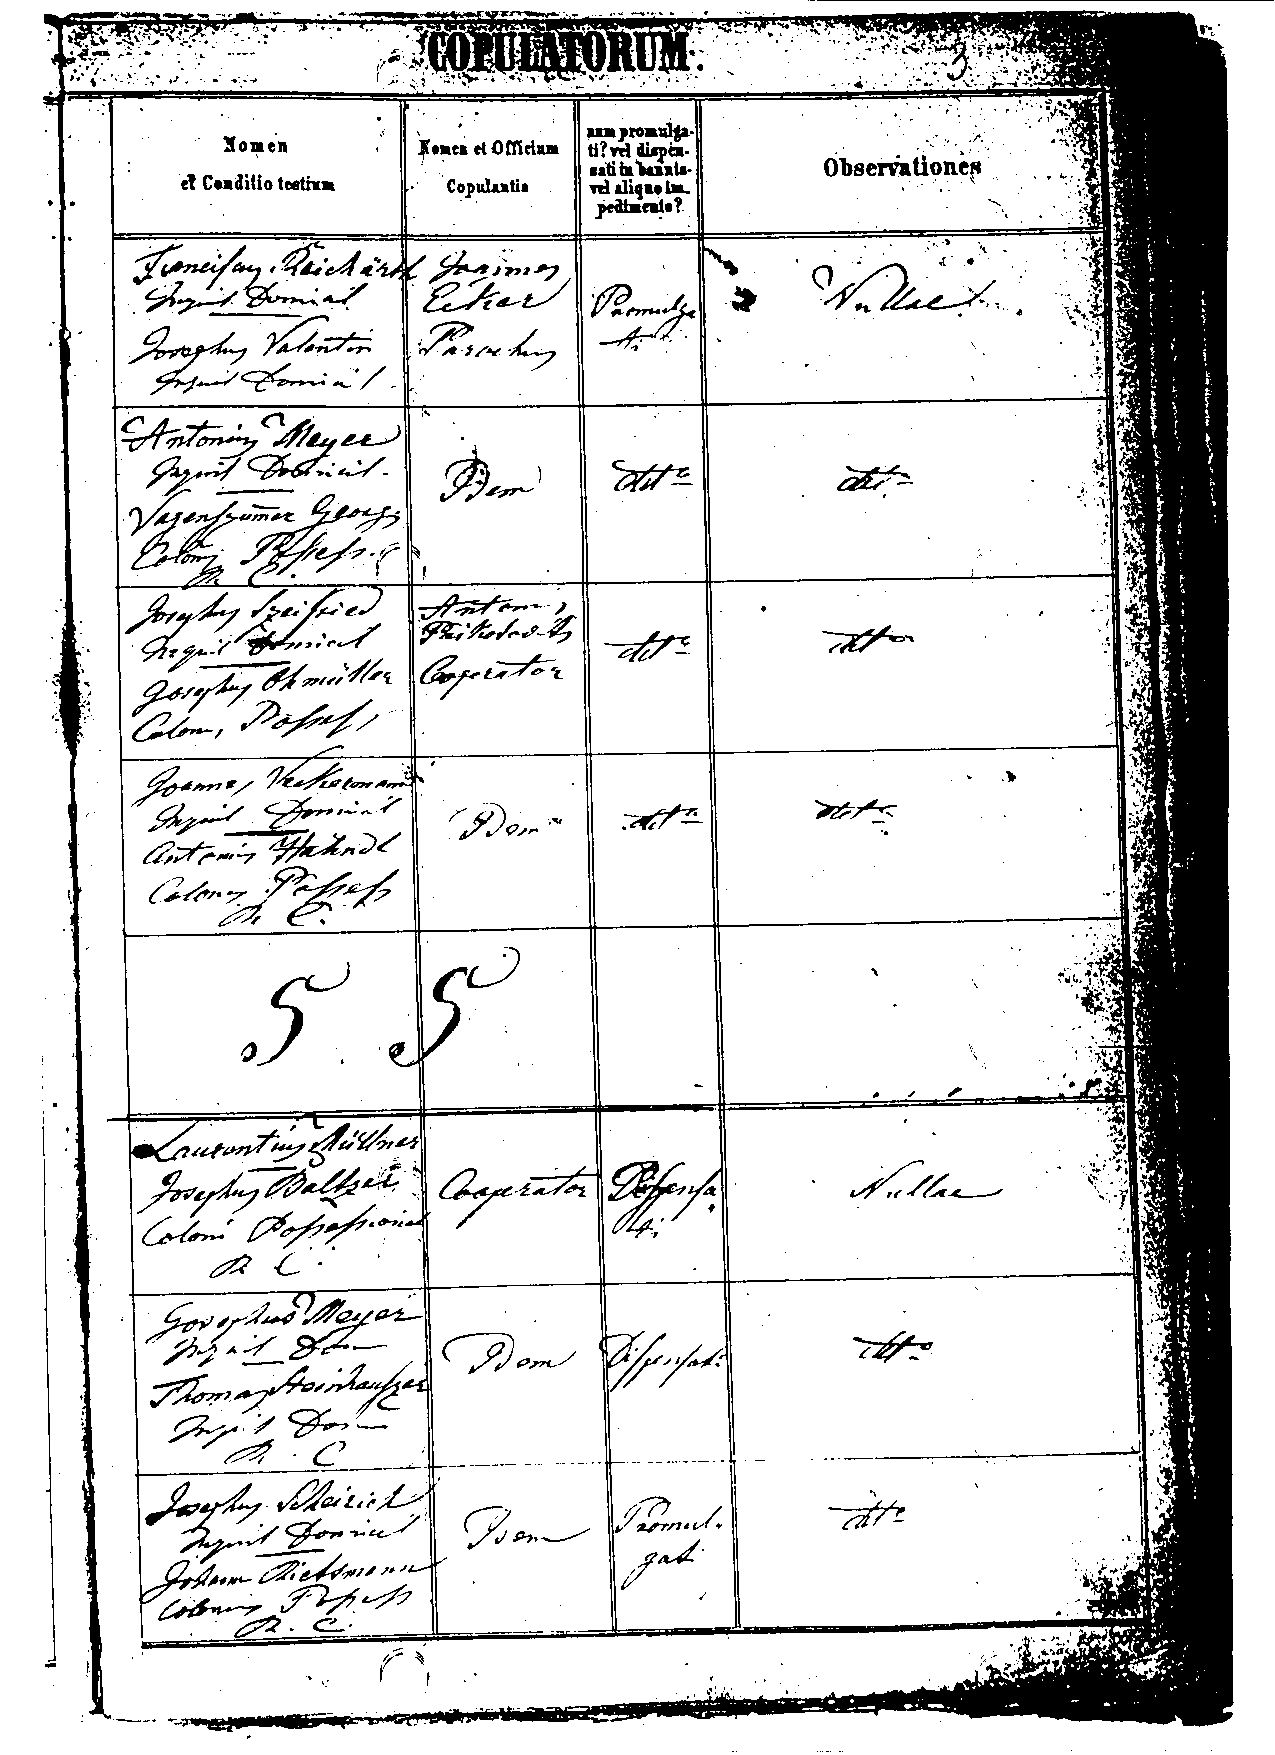 COPULATORUM.
3
Nomen
et Conditio testium
Nomen et Officium
Copulantis
num promulga-
ti? vel dispen-
sati in bannis
vel aliquo im-
pedimento?
Observationes
Franciscus Reichardt
Inquil Domicil
Josephus Valentin
Inquil Domicil
Joannes
Ecker
Parochus
Promulga
ti
Nullae
Antonius Meyer
Inquil Domicil.
Georg
Colonus Possess.
R. C.
Idem
ditto
ditto
Josephus Szeifried
Inquil Domicil
Josephus Ohmüller
Colonus Possess.
Antonius
Cooperator
ditto
ditto
Joannes Veckermann
Inquil Domicil
Antonius Hahndl
Colonus Possess
R. C.
Idem
ditto
ditto
5 5
Laurentius Müllner
Josephus Baltzer
Coloni Possessionat
R. C.
Cooperator
Dispensa
ti
Nullae
Josephus Meyer
Inquil Dom
Thomas Steinhauszer
Inquil Dom
R. C
Idem
Dispensati
ditto
Josephus Scheirich
Inquil Domicil
Johann Rietsmann
Colonus Possess
R. C.
Idem
Promul-
gati
ditto